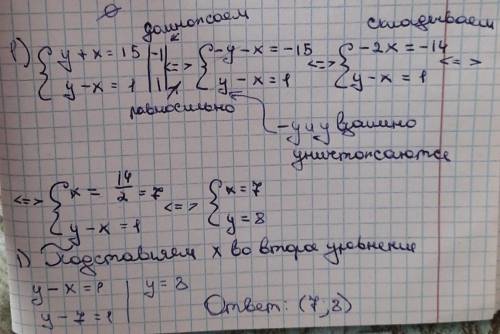 домножаем складываем
1) { y + x = 15 | -1 | <=> { -y - x = -15 <=> { -2x = -14 <=>
y - x = 1 | 1 | y - x = 1 y - x = 1
равносильно -y и y взаимно
уничтожаются
<=> { x = 14/2 = 7 <=> { x = 7
y - x = 1 y = 8
1) Подставляем x во второе уравнение
y - x = 1 | y = 8
y - 7 = 1 | Ответ: (7; 8)